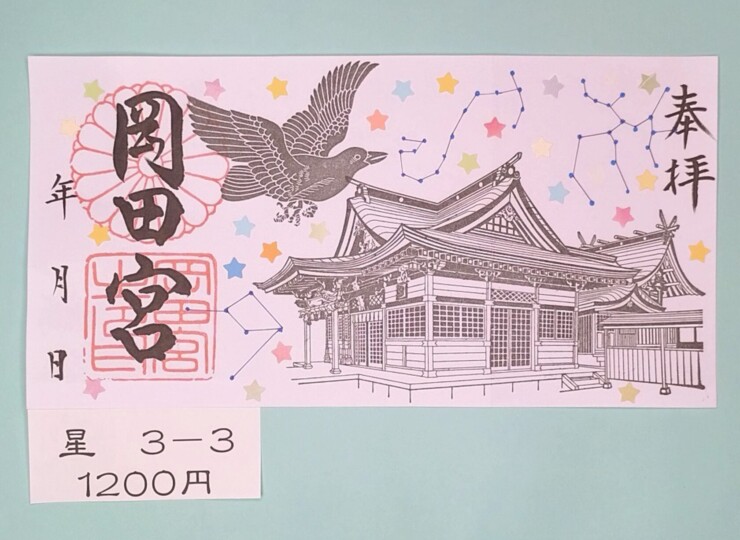 奉拝
岡田宮
年 月 日
星 3-3
1200円